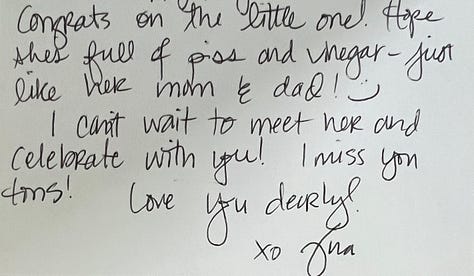 Congrats on the little one! Hope
shes full of piss and vinegar - just
like her mom & dad! :)
I can't wait to meet her and
celebrate with you! I miss you
tons!
Love you dearly!
xo